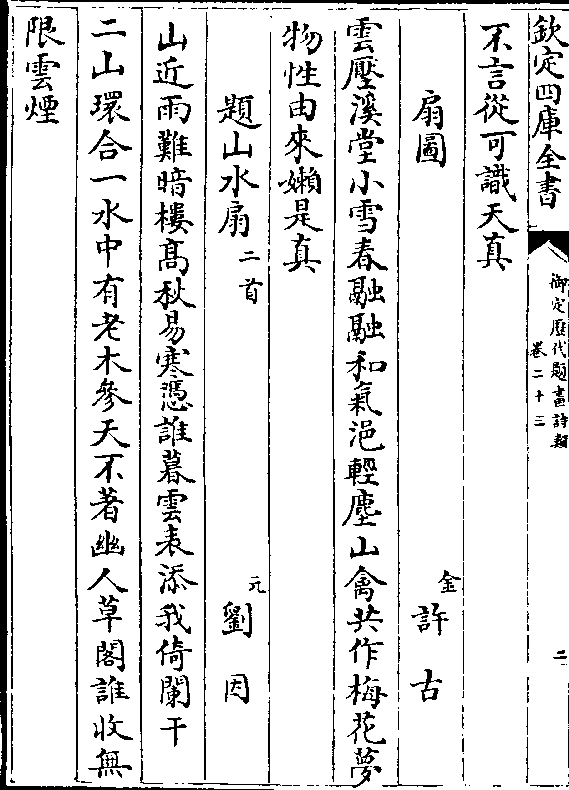 欽定四庫全書
御定歷代題畫詩類
卷二十三
二
不言從可識天真
扇圖 金 許古
雲壓溪堂小雪春融融和氣浥輕塵山禽共作梅花夢
物性由來嬾是真
題山水扇二首 元 劉因
山近雨難暗樓髙秋易寒憑誰暮雲表添我倚闌干
二山環合一水中有老木參天不著幽人草閣誰收無
限雲煙